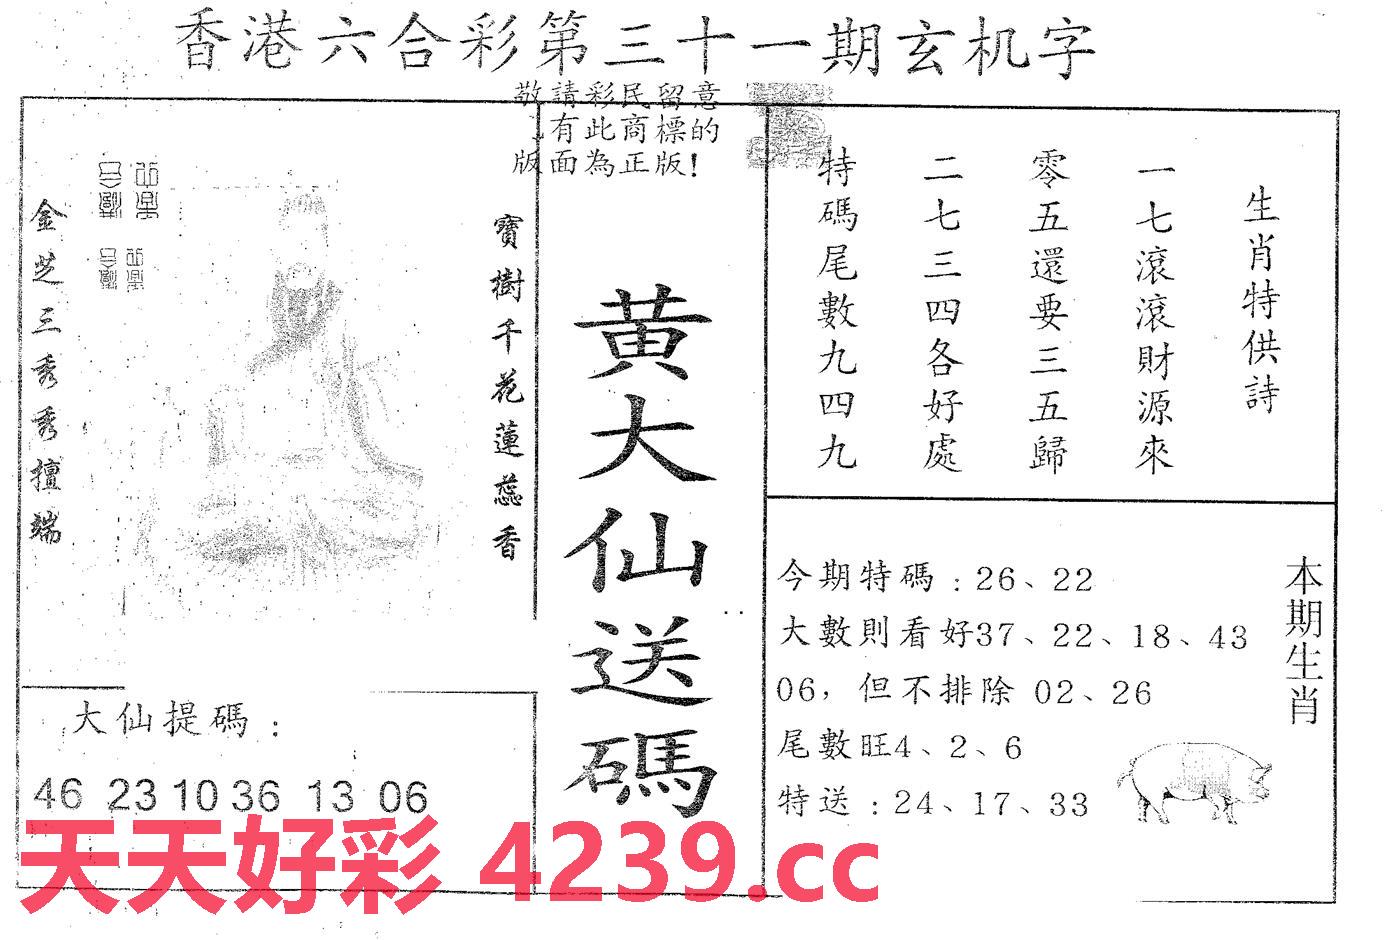 香港六合彩第三十一期玄机字
敬請彩民留意
有此商標的
版面為正版!
寶樹千花蓮蕊香
金芝三秀秀擅端
黄大仙送碼
生肖特供詩
一七滾滾財源來
零五還要三五歸
二七三四各好處
特碼尾數九四九
今期特碼:26、22
大數則看好37、22、18、43
06,但不排除 02、26
尾數旺4、2、6
特送:24、17、33
本期生肖
大仙提碼:
46 23 10 36 13 06
天天好彩 4239.cc